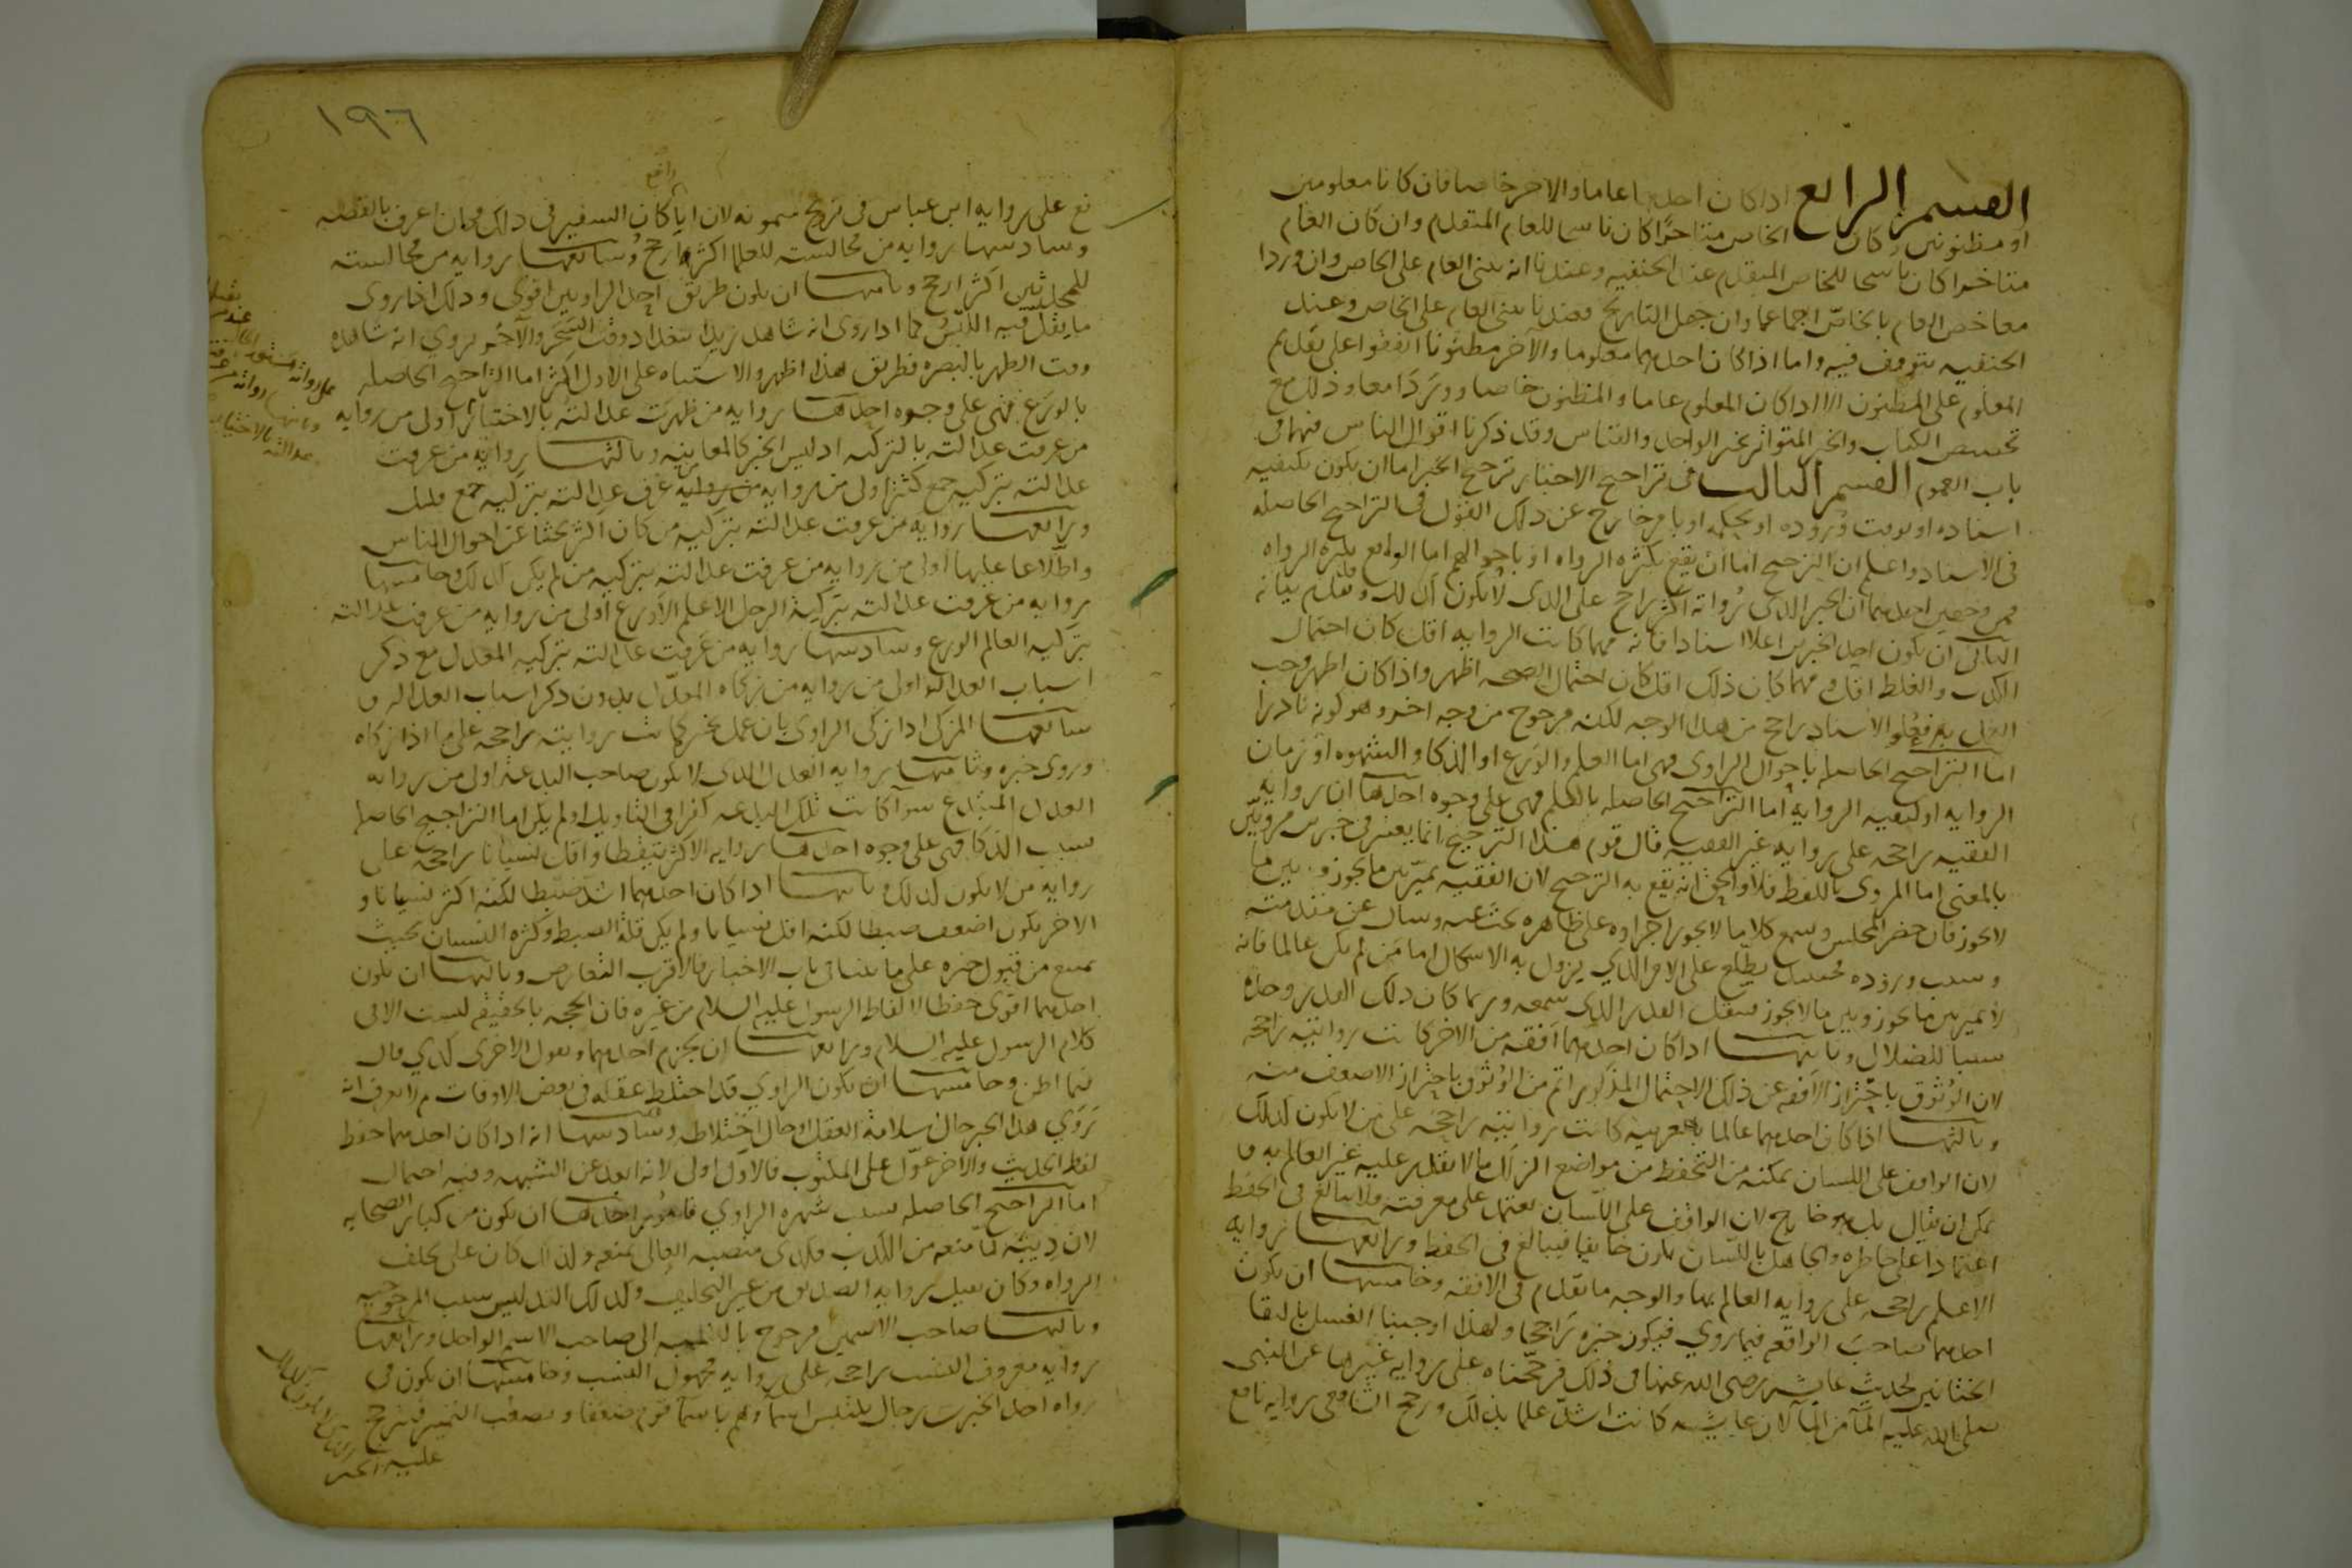 القسم الرابع اذا كان احدهما عاما والاخر خاصا فان كانا معلومين
او مظنونين وكان الخاص متاخرا كان ناسخا للعام المتقدم وان كان العام
متاخرا كان ناسخا للخاص المتقدم عند الحنفيه وعندنا انه يبنى العام على الخاص وان وردا
معا خص العام بالخاص اجماعا وان جهل التاريخ فعندنا يبنى العام على الخاص وعند
الحنفيه يتوقف فيه واما اذا كان احدهما معلوما والآخر مظنونا اتفقوا على تقديم
المعلوم على المظنون الا اذا كان المعلوم عاما والمظنون خاصا ووردا معا وذلك مع
تخصيص الكتاب والخبر المتواتر بخبر الواحد والقياس وقد ذكرنا اقوال الناس فيهما في
باب العموم القسم الثالث في تراجيح الاخبار ترجيح الخبر اما ان يكون بكيفيه
اسناده او بوقت وروده او بحكمه او بامر خارج عن ذلك القول في التراجيح الحاصله
في الاسناد واعلم ان الترجيح اما ان يقع بكثره الرواه او باحوالهم اما الواقع بكثره الرواه
فمن وجهين احدهما ان الخبر الذى رواته اكثر راجح على الذى لا يكون كذلك وتقدم بيانه
الثانى ان يكون احد الخبرين اعلا اسنادا فانه مهما كانت الرواه اقل كان احتمال
الكذب والغلط اقل ومهما كان ذلك اقل كان احتمال الصحه اظهر واذا كان اظهر وجب
العمل به فعلو الاسناد راجح من هذا الوجه لكنه مرجوح من وجه اخر وهو كونه نادرا
اما التراجيح الحاصله باحوال الراوى فهى اما العلم والورع او الذكا والشهره او زمان
الروايه او كيفيه الروايه اما التراجيح الحاصله بالعلم فهى على وجوه احدها ان روايه
الفقيه راجحه على روايه غير الفقيه قال قوم هذا الترجيح انما يعتبر فى خبرين مرويين
بالمعنى اما المروى باللفظ فلا والحق انه يقع به الترجيح لان الفقيه يميز بين ما يجوز وبين ما
لا يجوز فان حضر المجلس وسمع كلاما لا يجوز اجراوه على ظاهره بحث عنه وسال عن مقدمته
وسبب وروده فحينيذ يطلع على الامر الذي يزول به الاشكال اما من لم يكن عالما فانه
لا يميز بين ما يجوز وبين ما لا يجوز فينقل القدر الذى سمعه وربما كان ذلك القدر وحده
سببا للضلال وثانيها اذا كان احدهما افقه من الاخر كانت روايته راجحه
لان الوثوق باحتراز الافقه عن ذلك الاحتمال المذكور اتم من الوثوق باحتراز الاضعف منه
وثالثها اذا كان احدهما عالما بالعربيه كانت روايته راجحه على من لا يكون كذلك
لان الواقف على اللسان يمكنه من التحفظ من مواضع الزلل ما لا يقدر عليه غير العالم به و
يمكن ان يقال بل هو خارج لان الواقف على اللسان يعتمد على معرفته فلا يبالغ فى الحفظ
اعتمادا على خاطره والجاهل باللسان يكون خايفا فيبالغ فى الحفظ ورابعها روايه
الاعلم راجحه على روايه العالم بها والوجه ما تقدم فى الافقه وخامسها ان يكون
احدهما صاحب الواقعه فيما روي فيكون خبره راجحا ولهذا اوجبنا الغسل بالتقا
الختانين لحديث عايشه رضى الله عنها فى ذلك فرجحناه على روايه غيرها عن النبى
صلى الله عليه المآ من المآ لان عايشه كانت اشد علما بذلك ورجح الشافعى روايه نافع
١٩٦
رافع
فع على روايه ابن عباس فى تزويج ميمونه لان ابا كان السفير فى ذلك فكان اعرف بالقصه
وسادسها روايه من مجالسته للعلما اكثر ارجح وسابعها روايه من مجالسته
للمحدثين اكثر ارجح وثامنها ان يكون طريق احد الراويين اقوى وذلك اذا روى
ما يقل فيه اللبس كما اذا روى انه شاهد زيدا ببغداد وقت السحر والآخر يروي انه شاهده
وقت الظهر بالبصره فطريق هذا اظهر والاشتباه على الاول اكثر اما التراجيح الحاصله
بالورع فهى على وجوه احدها روايه من ظهرت عدالته بالاختبار اولى من روايه
من عرفت عدالته بالتزكيه اذ ليس الخبر كالمعاينه وثالثها روايه من عرفت
عدالته بتزكيه جمع كثير اولى من روايه من عرف عدالته بتزكيه جمع قليل
ورابعها روايه من عرفت عدالته بتزكيه من كان اكثر بحثا عن احوال الناس
واطلاعا عليها اولى من روايه من عرفت عدالته بتزكيه من لم يكن كذلك وخامسها
روايه من عرفت عدالته بتزكية الرجل الاعلم الاورع اولى من روايه من عرفت عدالته
بتزكيه العالم الورع وسادسها روايه من عرفت عدالته بتزكيه المعدل مع ذكر
اسباب العداله اولى من روايه من زكاه المعدل بدون ذكر اسباب العداله و
سابعها المزكى اذا زكى الراوى بان عمل بخبره كانت روايته راجحه على ما اذا زكاه
وروى خبره وثامنها روايه العدل الذى لا يكون صاحب البدعه اولى من روايه
العدل المبتدع سوآ كانت تلك البدعه كفرا فى التاويل او لم يكن اما التراجيح الحاصله
بسبب الذكا فهى على وجوه احدها روايه الاكثر تيقظا واقل نسيانا راجحه على
روايه من لا يكون كذلك وثانيها اذا كان احدهما اشد ضبطا لكنه اكثر نسيانا و
الاخر يكون اضعف ضبطا لكنه اقل نسيانا ولم يكن قلة الضبط وكثره النسيان بحيث
يمنع من قبول خبره على ما بيناه فى باب الاخبار فالاقرب التعارض وثالثها ان يكون
احدهما اقوى حفظا لالفاظ الرسول عليه السلام من غيره فان الحجه بالحقيقه ليست الا فى
كلام الرسول عليه السلام ورابعها ان يجزم احدهما ويقول الاخرى كذي قال
فيما اظن وخامسها ان يكون الراوي قد اختلط عقله فى بعض الاوقات ثم لا يعرف انه
روي هذا الخبر حال سلامة العقل او حال اختلاطه وسادسها انه اذا كان احدهما حفظ
لفظ الحديث والاخر عول على المكتوب فالاول اولى لانه ابعد عن الشبهه وفيه احتمال
اما التراجيح الحاصله بسبب شهره الراوي فامور احدها ان يكون من كبار الصحابه
لان دينه لما منعه من الكذب فكذى منصبه العالى يمنعه ولذلك كان على يحلف
الرواه وكان يقبل روايه الصديق من غير التحليف ولذلك التدليس سبب المرجوحيه
وثالثها صاحب الاسمين مرجوح بالنسبه الى صاحب الاسم الواحد ورابعها
روايه معروف النسب راجحه على روايه مجهول النسب وخامسها ان يكون فى
رواه احد الخبرين رجال يلتبس اسمآوهم باسمآ قوم ضعفا ويصعب التمييز فيترجح
عليه الخبر